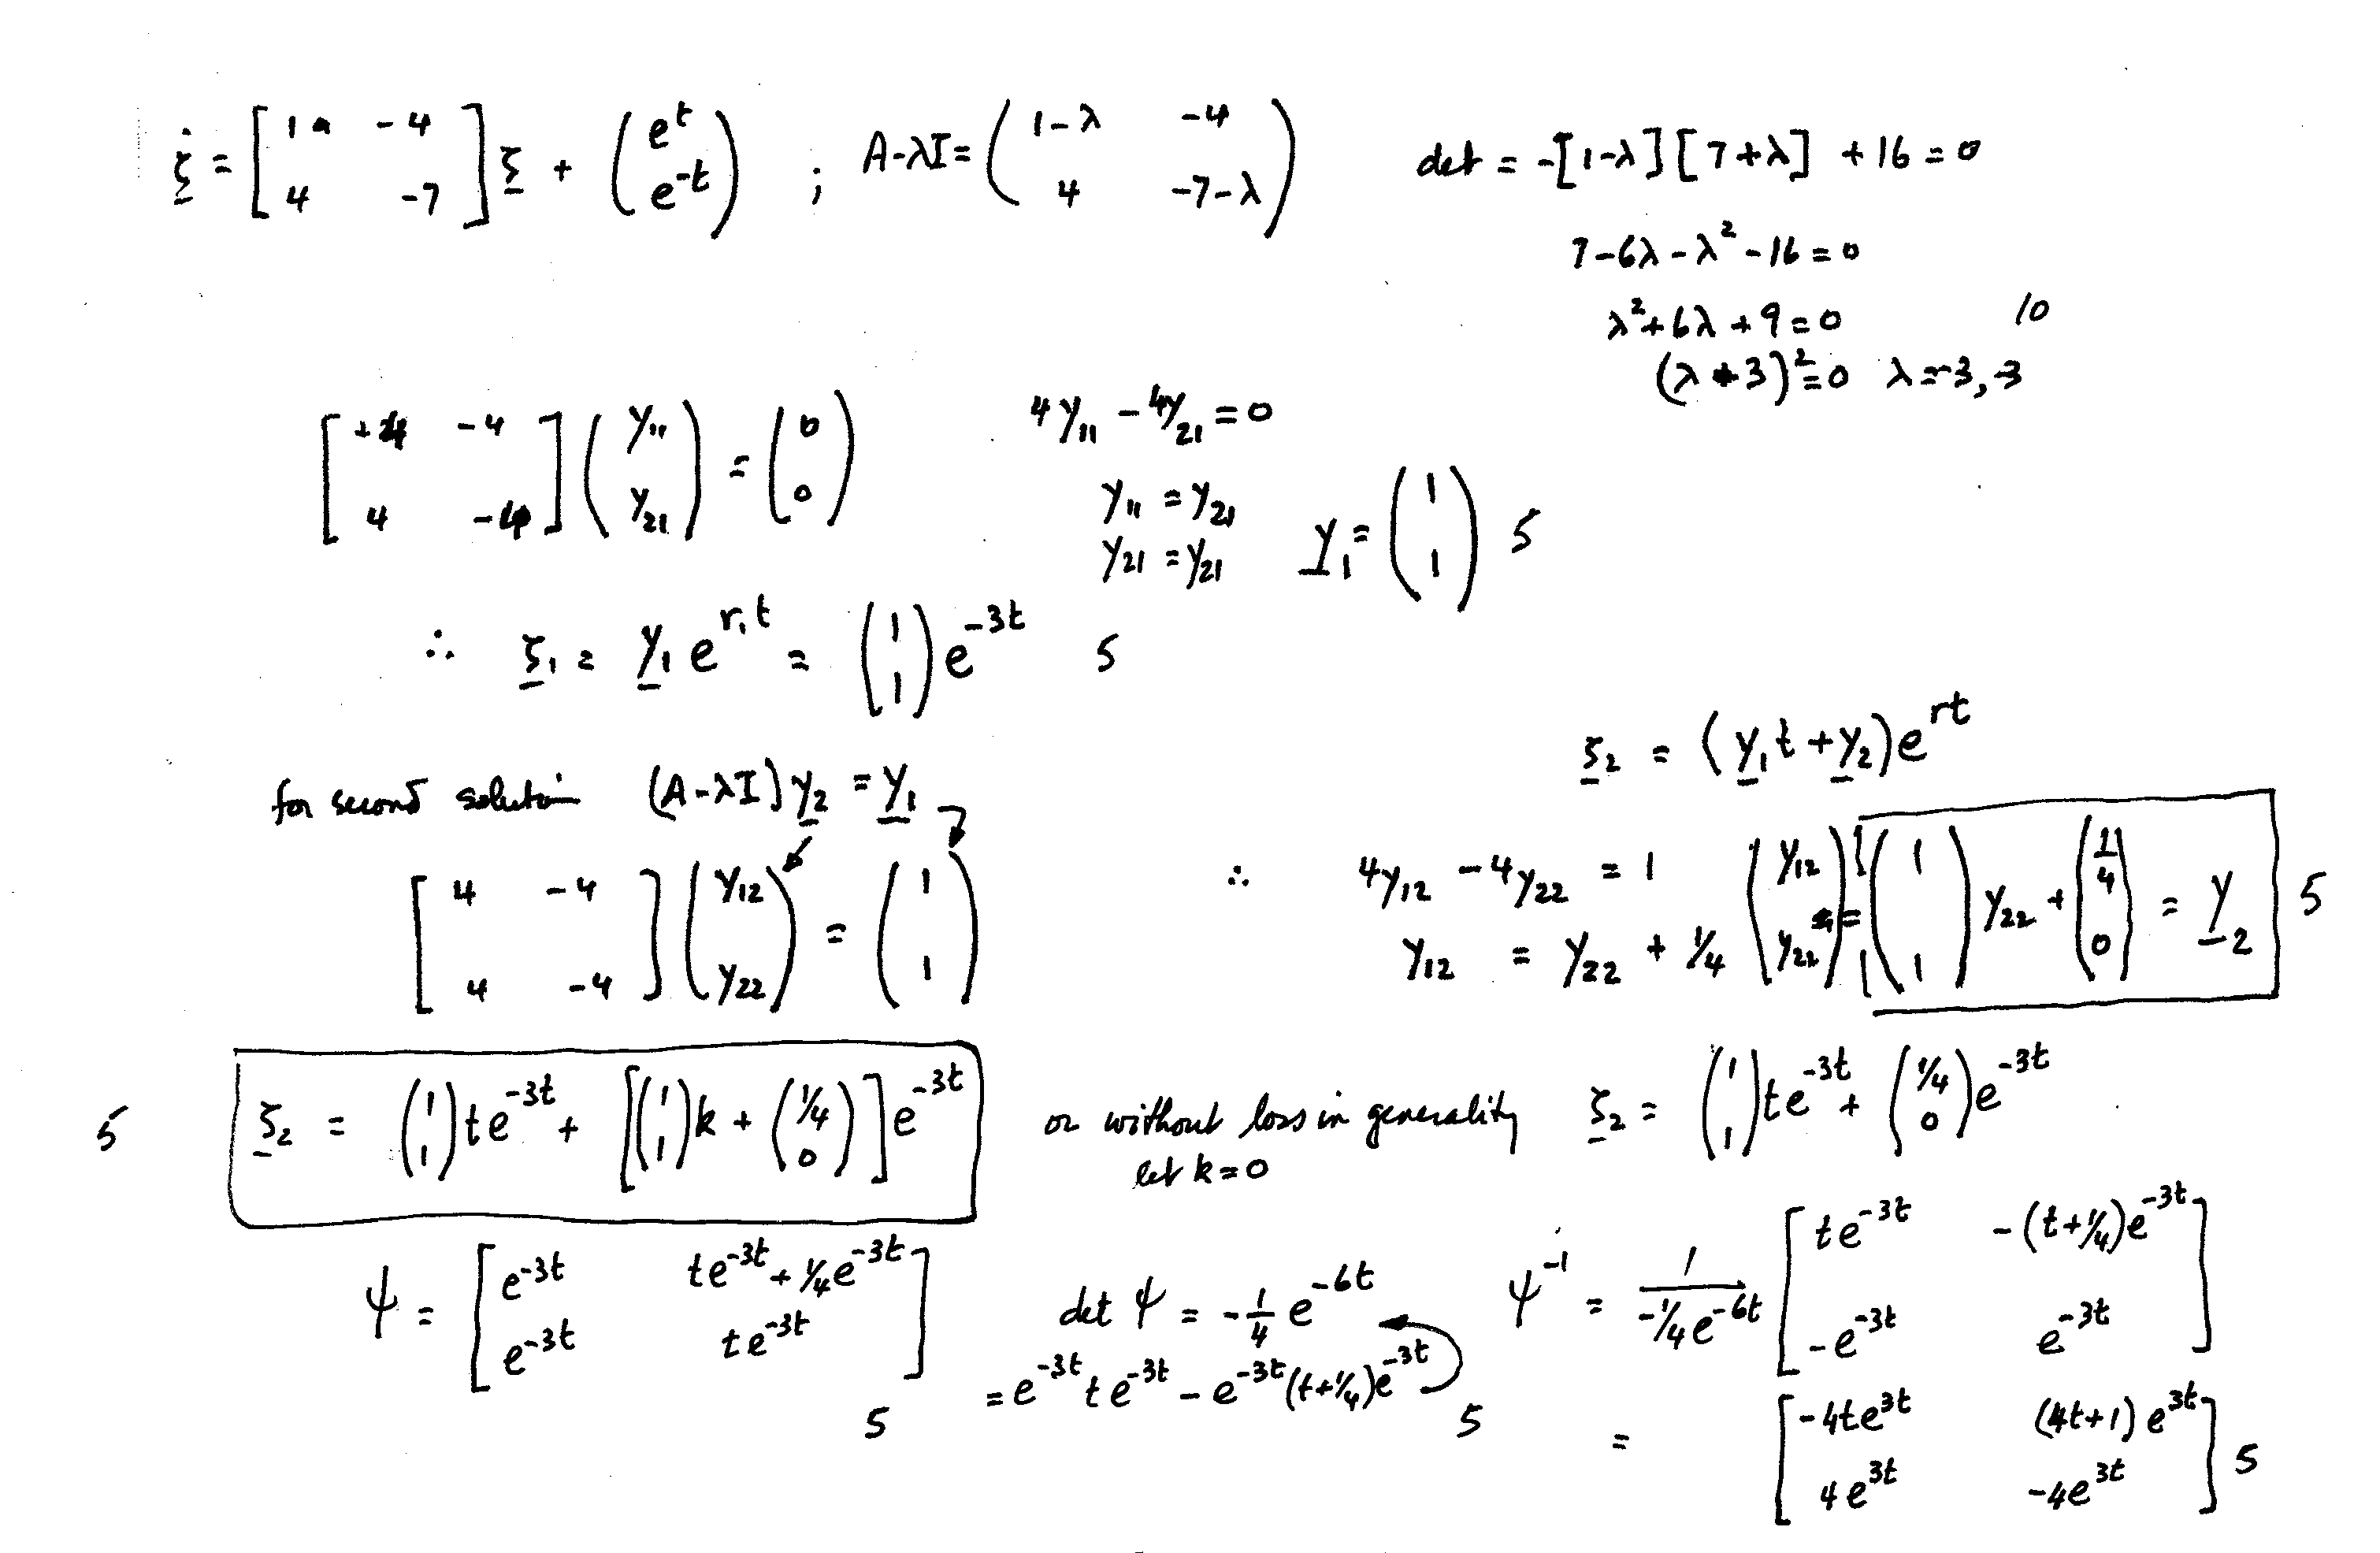 ξ̇ = [1 -4; 4 -7] ξ + (e^t; e^-t) ; A-λI = (1-λ -4; 4 -7-λ) det = -[1-λ][7+λ] + 16 = 0
7 - 6λ - λ² - 16 = 0
λ² + 6λ + 9 = 0 10
(λ + 3)² = 0 λ = -3, -3
[+4 -4; 4 -4] (y₁₁; y₂₁) = (0; 0) 4y₁₁ - 4y₂₁ = 0
y₁₁ = y₂₁
y₂₁ = y₂₁ y₁ = (1; 1) 5
∴ ξ₁ = y₁ e^{r₁t} = (1; 1) e^{-3t} 5
ξ₂ = (y₁t + y₂)e^{rt}
for second solution (A-λI) y₂ = y₁
[4 -4; 4 -4] (y₁₂; y₂₂) = (1; 1) ∴ 4y₁₂ - 4y₂₂ = 1
y₁₂ = y₂₂ + 1/4 (y₁₂; y₂₂) = (1; 1) y₂₂ + (1/4; 0) = y₂ 5
5 ξ₂ = (1; 1) te^{-3t} + [(1; 1)k + (1/4; 0)] e^{-3t} or without loss in generality ξ₂ = (1; 1) te^{-3t} + (1/4; 0) e^{-3t}
let k = 0
ψ = [e^{-3t} te^{-3t} + 1/4 e^{-3t}; e^{-3t} te^{-3t}] 5
det ψ = -1/4 e^{-6t}
= e^{-3t} te^{-3t} - e^{-3t}(t+1/4)e^{-3t} 5
ψ^{-1} = 1/(-1/4 e^{-6t}) [te^{-3t} -(t+1/4)e^{-3t}; -e^{-3t} e^{-3t}]
= [-4te^{3t} (4t+1)e^{3t}; 4e^{3t} -4e^{3t}] 5